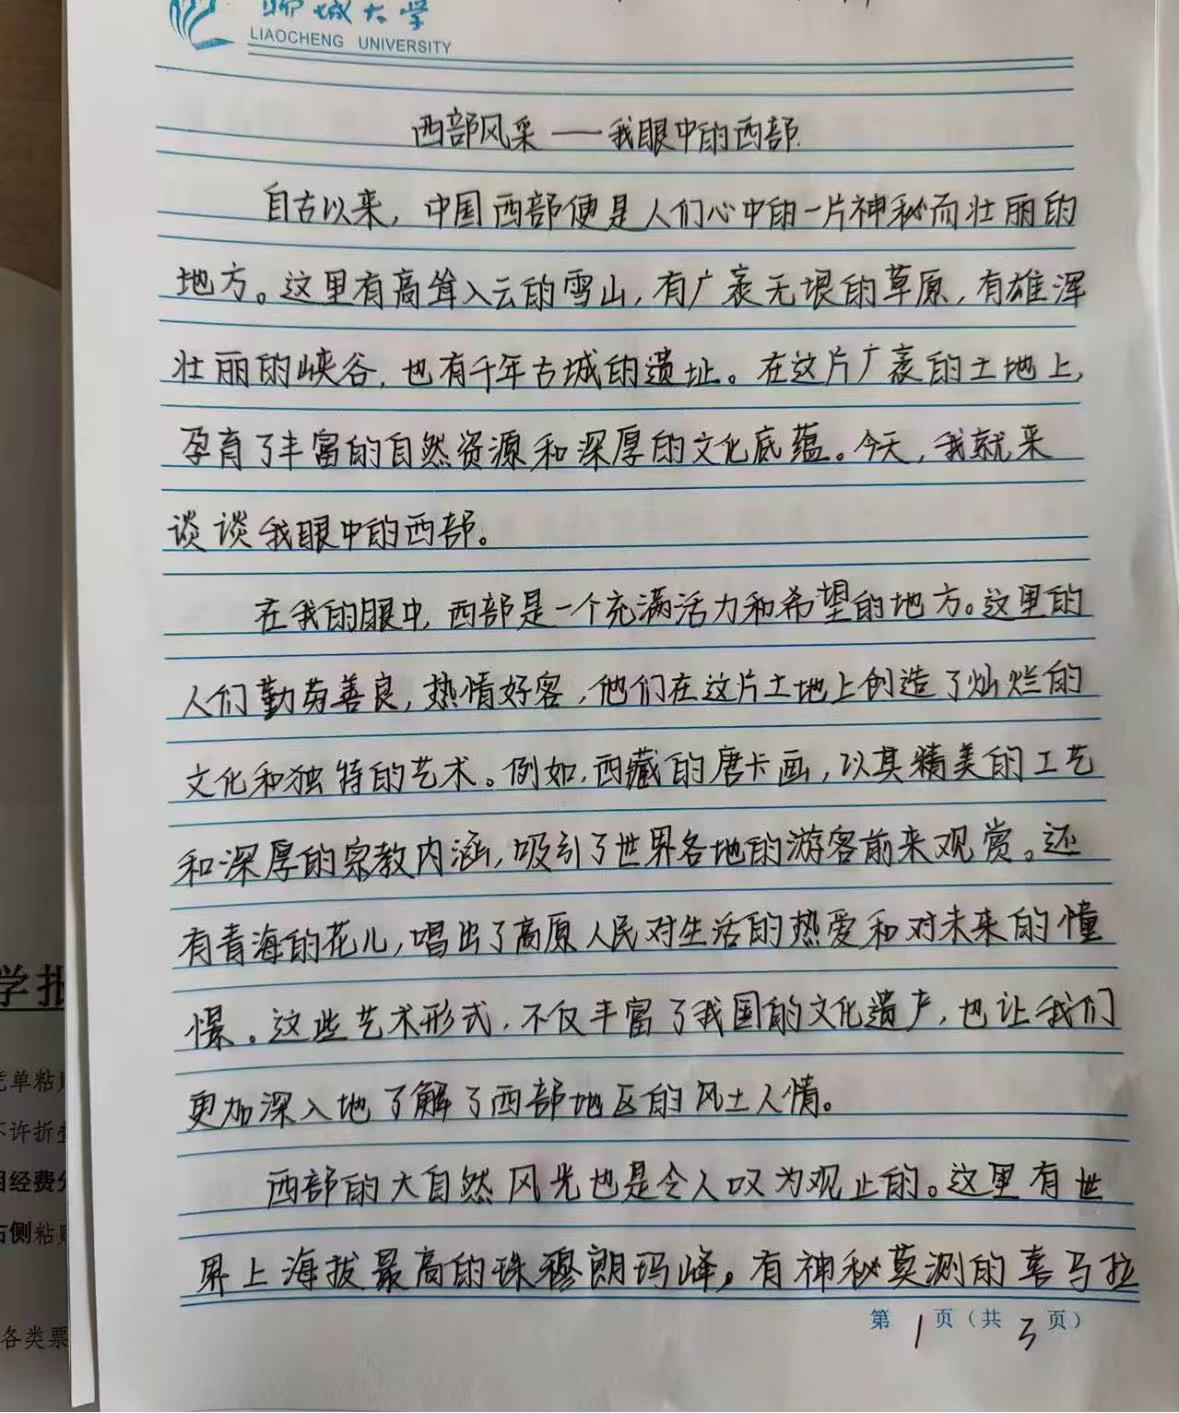 聊城大学
LIAOCHENG UNIVERSITY
西部风采——我眼中的西部
自古以来，中国西部便是人们心中的一片神秘而壮丽的
地方。这里有高耸入云的雪山，有广袤无垠的草原，有雄浑
壮丽的峡谷，也有千年古城的遗址。在这片广袤的土地上，
孕育了丰富的自然资源和深厚的文化底蕴。今天，我就来
谈谈我眼中的西部。
在我的眼中，西部是一个充满活力和希望的地方。这里的
人们勤劳善良，热情好客，他们在这片土地上创造了灿烂的
文化和独特的艺术。例如，西藏的唐卡画，以其精美的工艺
和深厚的宗教内涵，吸引了世界各地的游客前来观赏。还
有青海的花儿，唱出了高原人民对生活的热爱和对未来的憧
憬。这些艺术形式，不仅丰富了我国的文化遗产，也让我们
更加深入地了解了西部地区的风土人情。
西部的大自然风光也是令人叹为观止的。这里有世
界上海拔最高的珠穆朗玛峰，有神秘莫测的喜马拉
第1页（共3页）
学报
单粘贴
不许折叠
经费
右侧粘贴
各类票